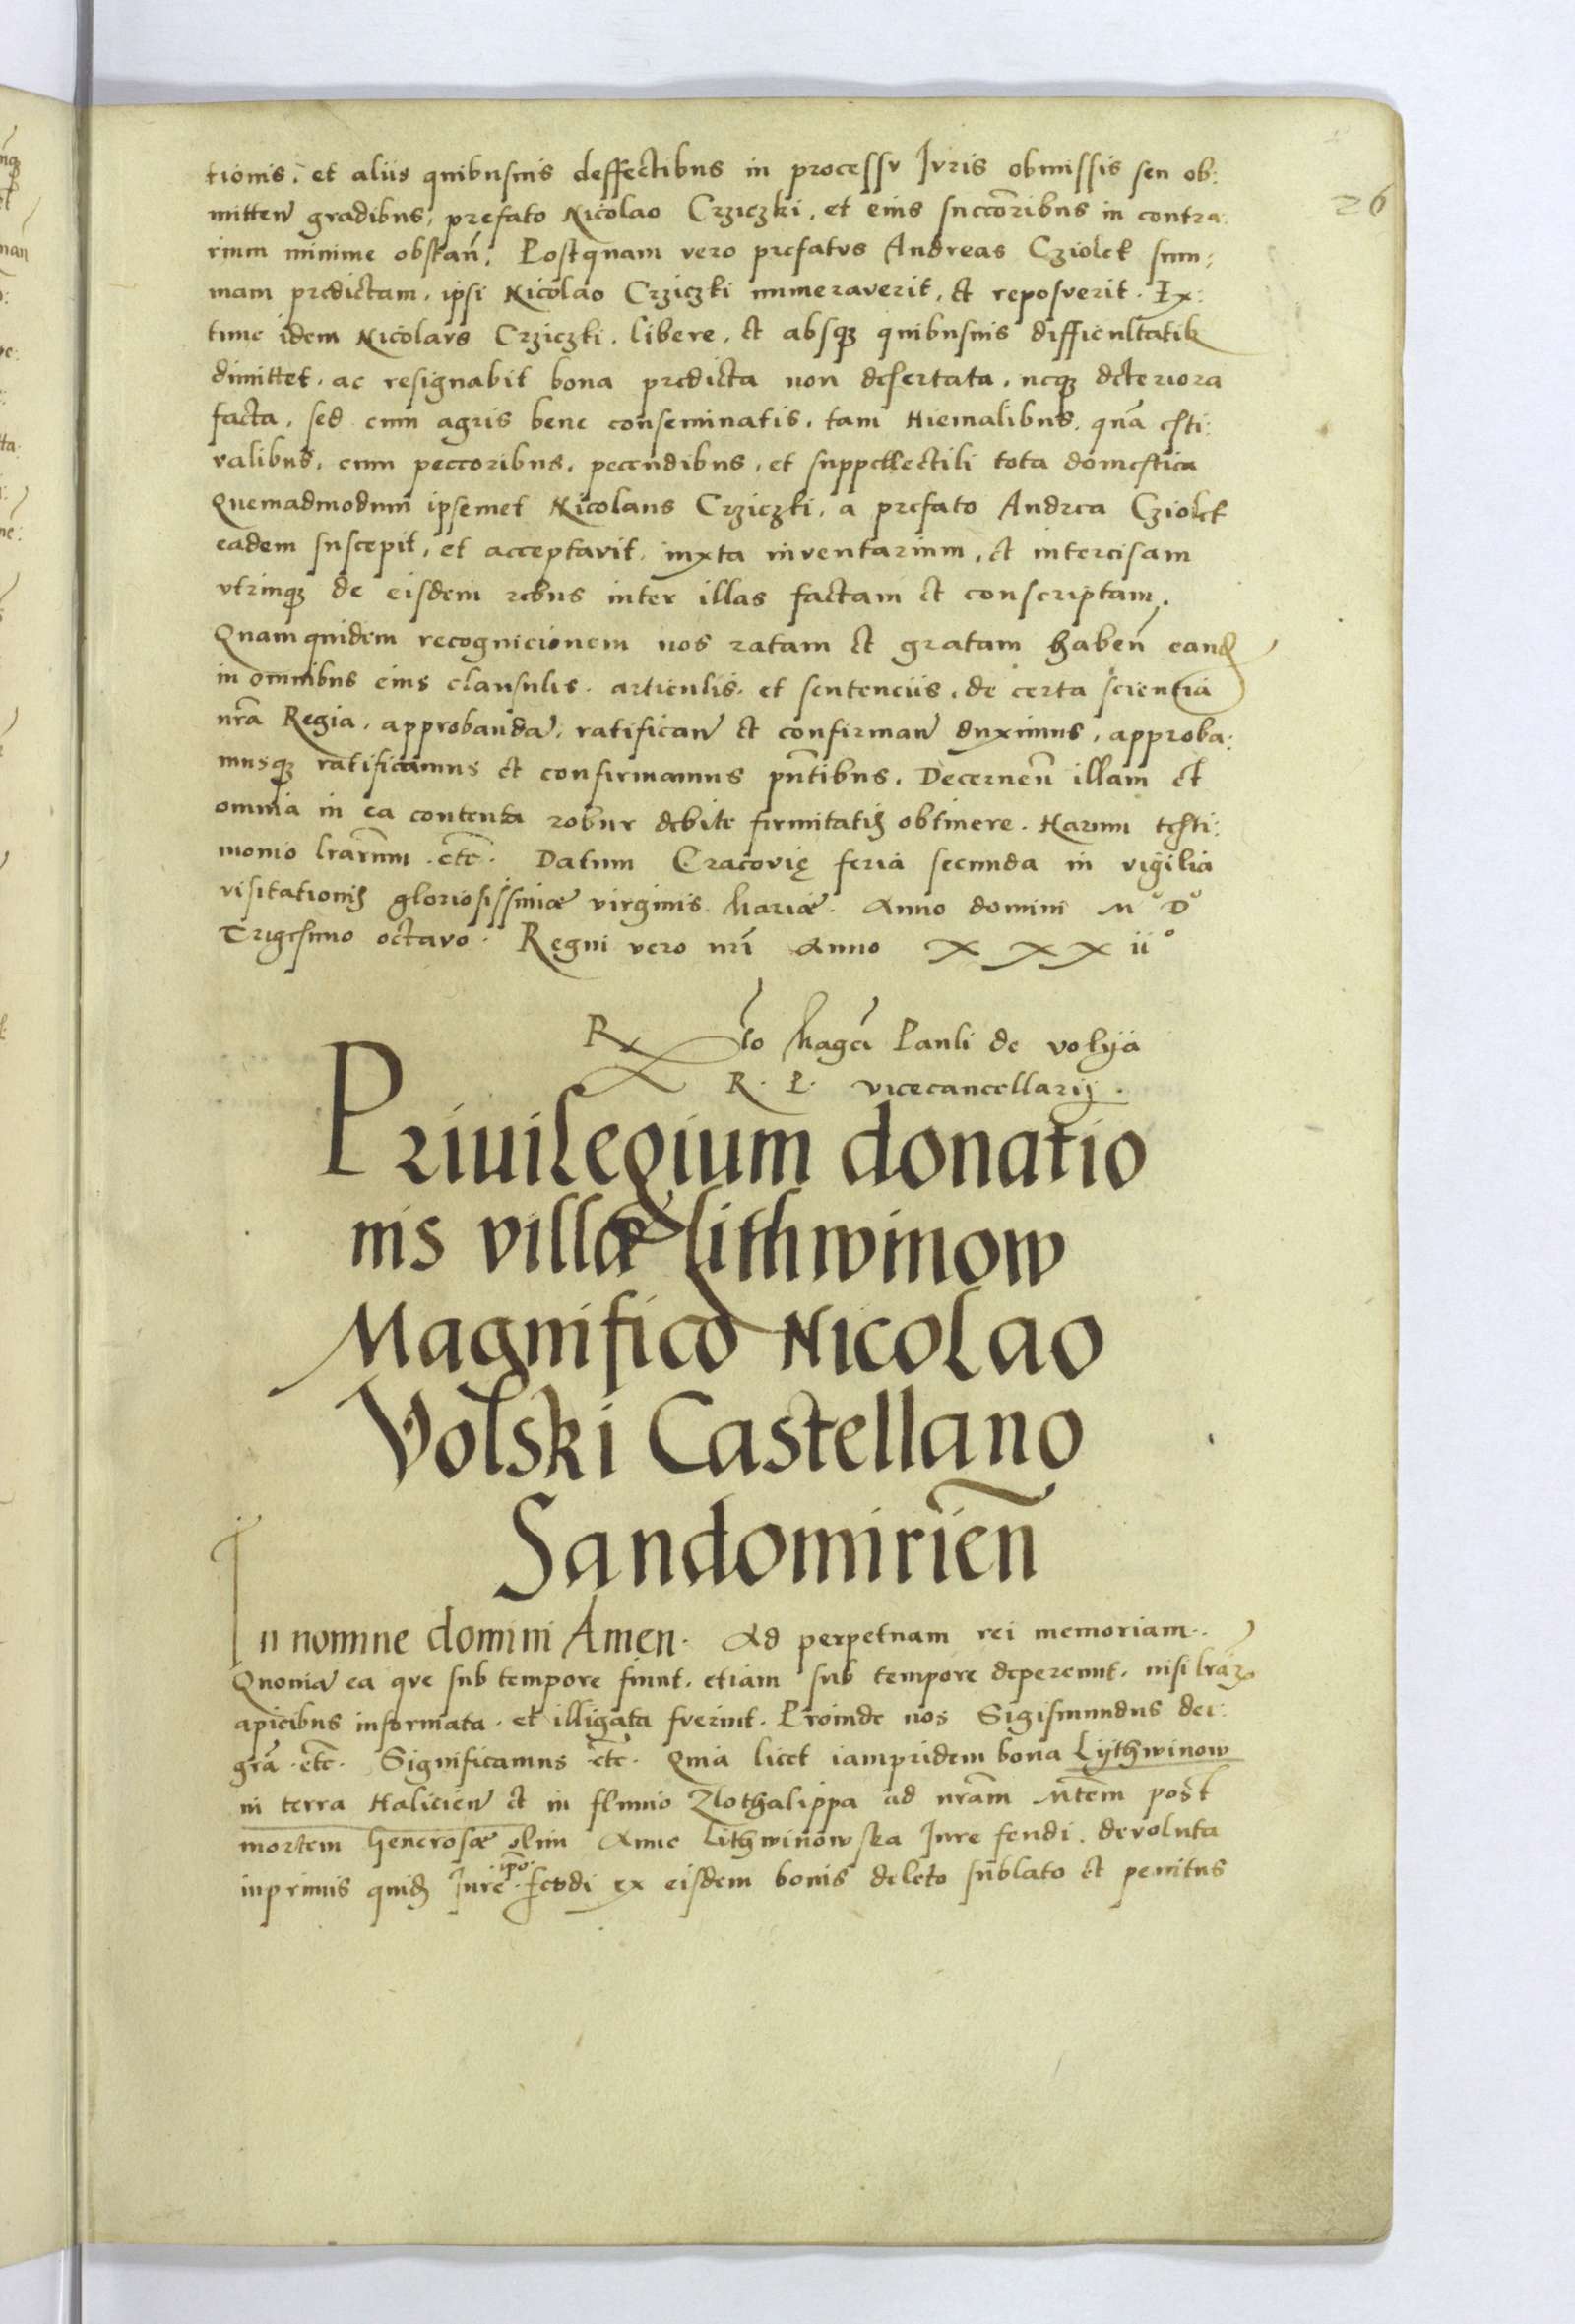 26
tionis, et aliis quibusuis deffectibus in processv Jvris obmissis seu ob:
mitteń gradibus, prefato Nicolao Crziczki, et eius succ̃oribus in contra:
rium minime obstań. Postquam vero prefatvs Andreas Cziolek sum:
mam predictam, ipsi Nicolao Crziczki numeraverit, et reposverit. Ex:
tunc idem Nicolavs Crziczki, libere, et absqꝫ quibusuis difficultatibꝫ
dimittet, ac resignabit bona predicta non desertata, neqꝫ deteriora
facta, sed cum agris bene conseminatis, tam Hiemalibus, quã esti:
valibus, cum peccoribus, pecudibus, et suppellectili tota domestica
Quemadmodum ipsemet Nicolaus Crziczki, a prefato Andrea Cziolek
eadem suscepit, et acceptavit, iuxta inventarium, et intercisam
vtrinqꝫ de eisdem rebus inter illas factam et conscriptam.
Quam quidem recognicionem nos ratam et gratam habeń eand̃
in omnibus eius clausulis, articulis, et sentenciis, de certa scientia
nr̃a Regia, approbandã, ratificań et confirmań duximus, approba:
musqꝫ ratificamus et confirmamus pñtibus. Decerneń illam et
omnia in ea contenta robur debite firmitatis obtinere. Harum testi:
monio lr̃arum .etc̃. Datum Cracovię feria secunda in vigilia
visitationis gloriosissimæ virginis Mariæ. Anno domini Mº Dº
Trigesimo octavo. Regni vero nr̃i Anno XXXiiº
R̃elãtio Mag̃ci Pauli de volya
R. P. vicecancellarij.
Priuilegium donatio
nis villæ Lithwinow
Magnifico Nicolao
Volski Castellano
Sandomirień
In nomine domini Amen. Ad perpetuam rei memoriam.
Quoniã ea qve sub tempore fiunt, etiam sub tempore depereunt, nisi lr̃aꝝ
apicibus informata, et illigata fverint. Proinde nos Sigismundus dei:
gr̃a .etc̃. Significamus etc̃. Quia licet iampridem bona Lythwinow
in terra Halicień et in fluuio Zlothalippa ad nr̃am Mt̃em post
mortem Generosæ olim Anne Lithwinowska Jure feudi, devoluta
inprimis quid̃ Jure ip̃o fevdi ex eisdem bonis deleto sublato et penitus